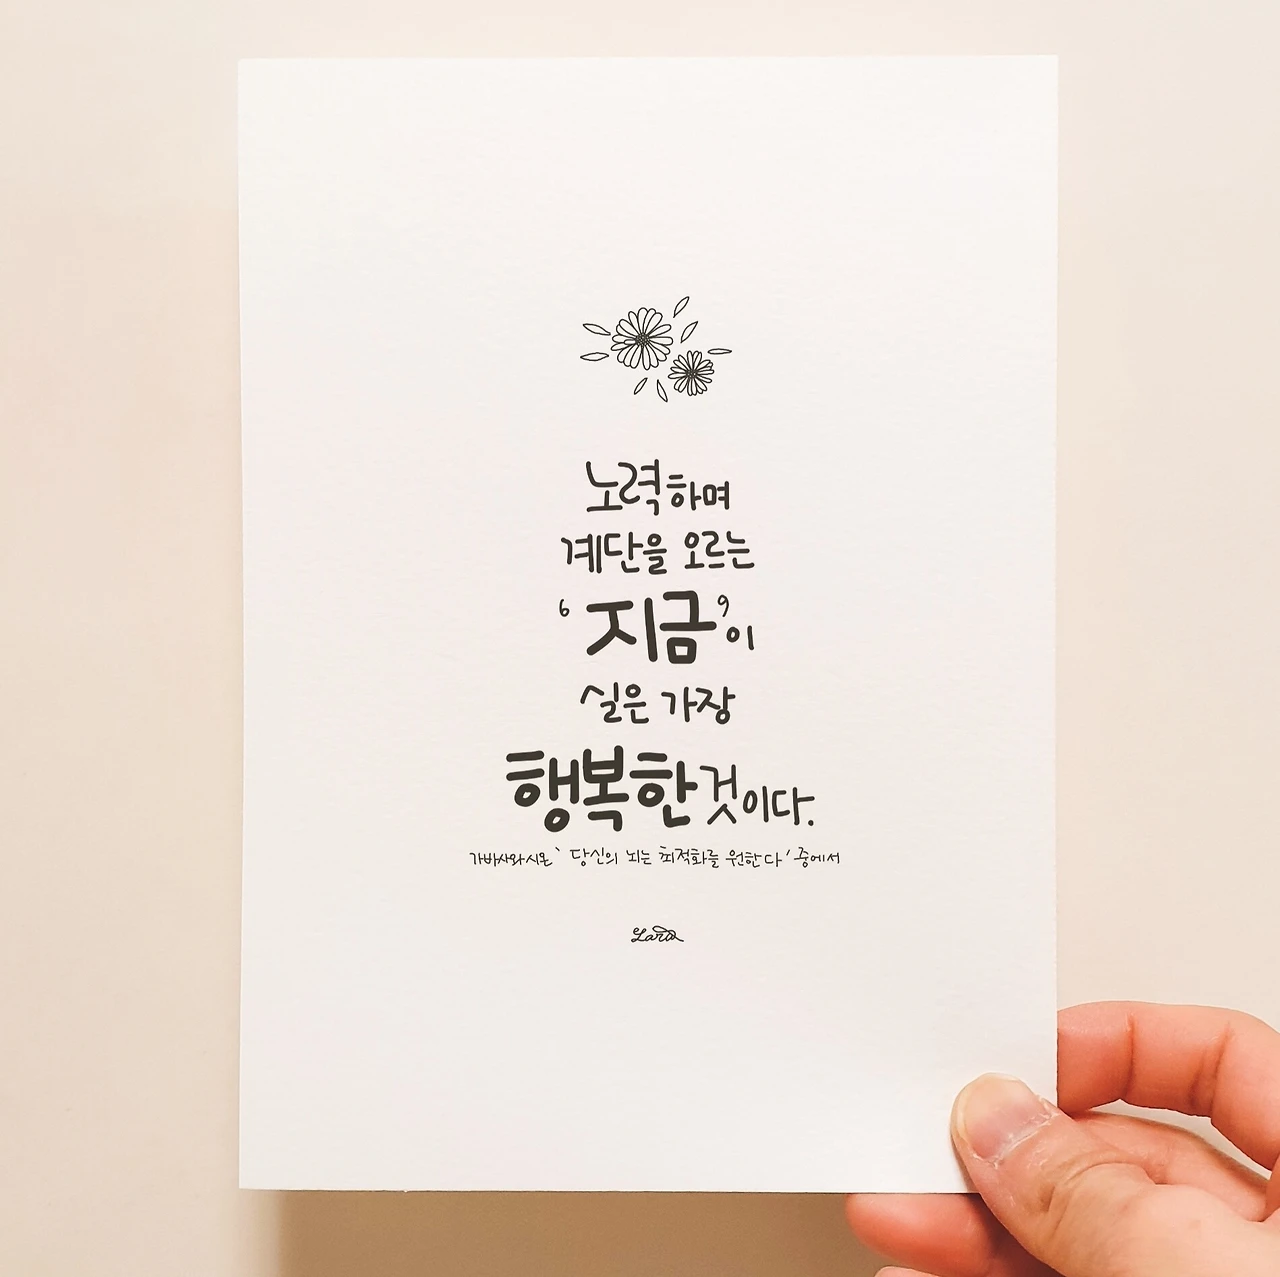 노력하며
계단을 오르는
‘지금’이
실은 가장
행복한것이다.
가바사와시온 ‘당신의 뇌는 최적화를 원한다’ 중에서
Lara